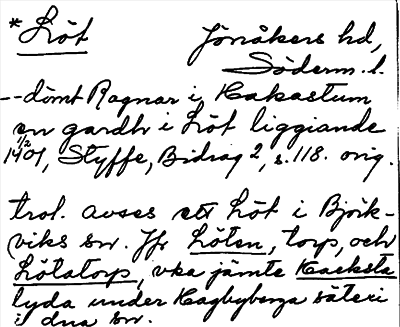 *Löt Jönåkers hd,
Söderm. l.
--dömt Ragnar i Hakastum
en gardh i Löt liggiande
1/2 1401, Styffe, Bidrag 2, s. 118. orig.
trol. avses ett Löt i Björk-
viks sn. Jfr Löten, torp, och
Lötatorp, vka jämte Hacksta
lyda under Hagbyberga säteri
i dna sn.